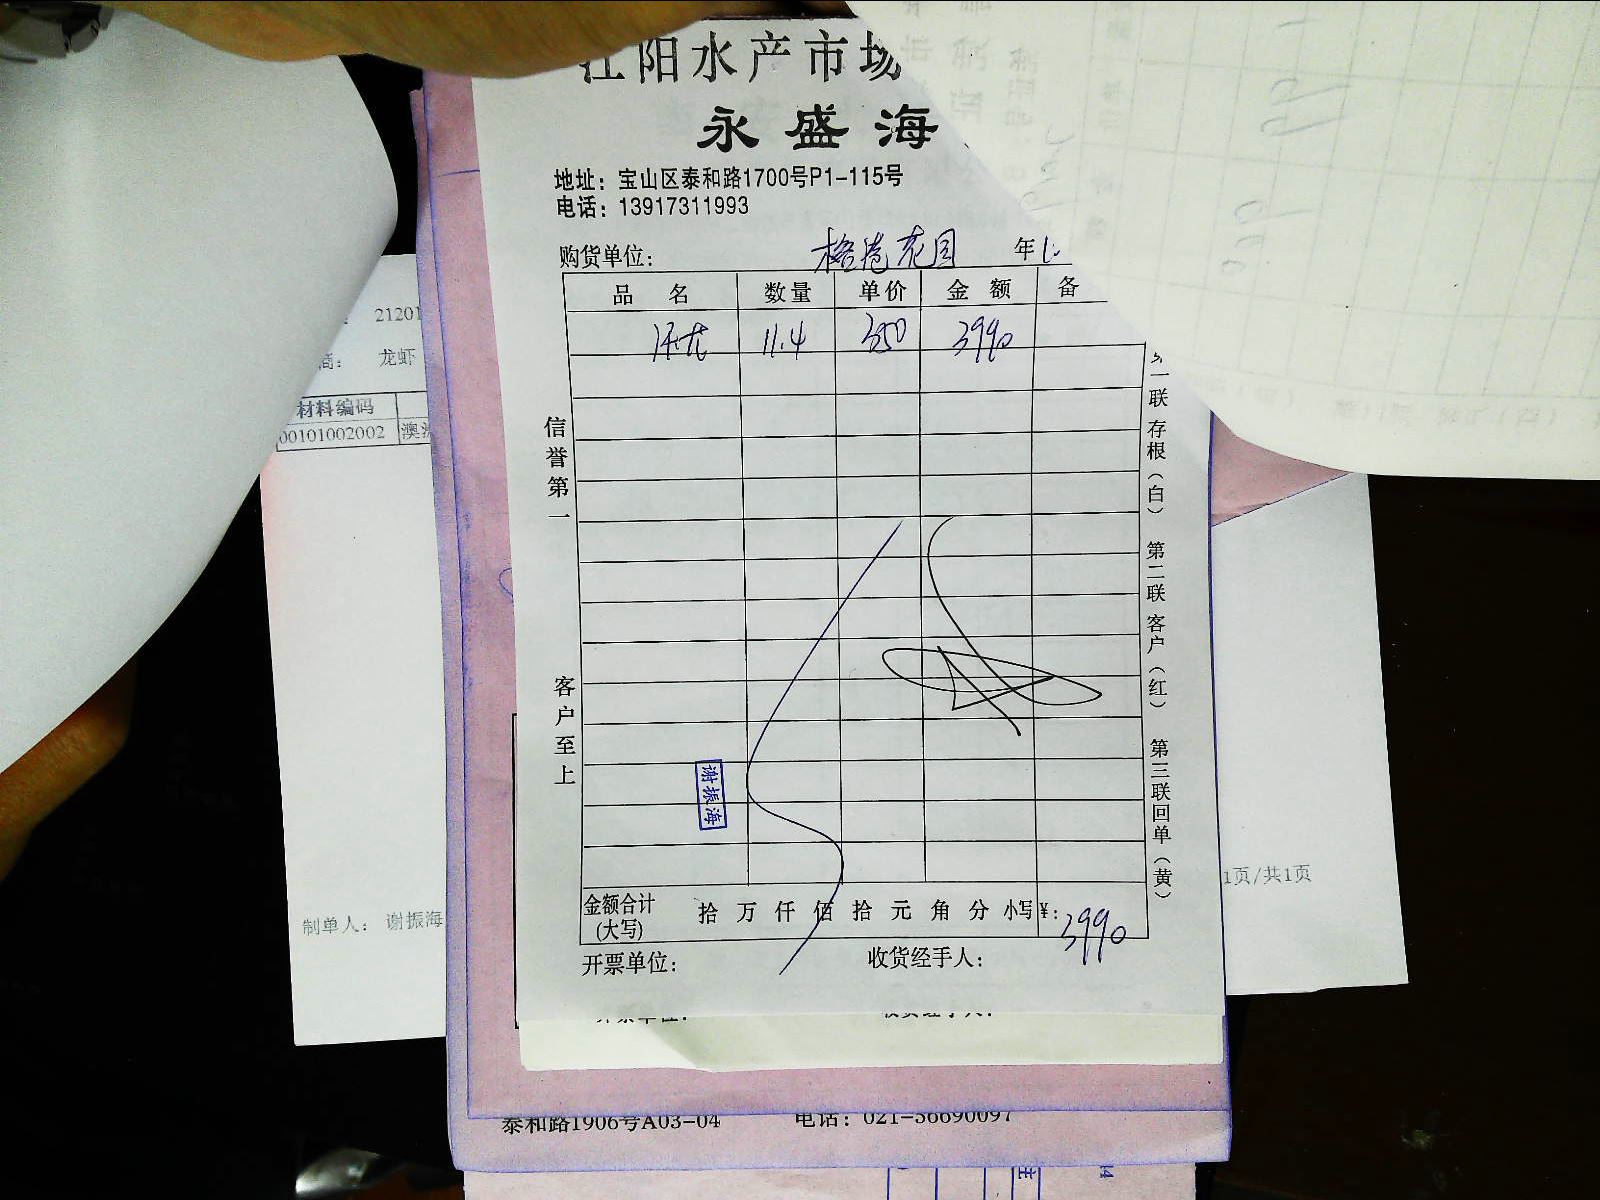 江阳水产市场
永盛海
地址：宝山区泰和路1700号P1-115号
电话：13917311993
购货单位： 年
品名 数量 单价 金额 备
11.4 350 3990
信誉第一
客户至上
第一联存根（白） 第二联客户（红） 第三联回单（黄）
谢振海
金额合计(大写) 拾万仟佰拾元角分 小写¥：3990
开票单位： 收货经手人：
21201
商： 龙虾
材料编码
00101002002 澳
制单人： 谢振海
1页/共1页
泰和路1906号A03-04 电话：021-56690097